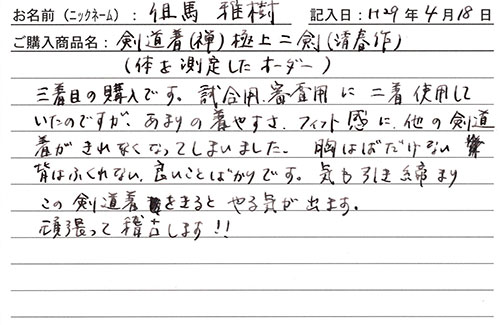 お名前(ニックネーム): 但馬 雅樹 記入日:H29年4月18日
ご購入商品名: 剣道着(襌)極上二剣(清春作)
(体を測定したオーダー)
三着目の購入です。試合用、審査用に二着使用して
いたのですが、あまりの着やすさ、フィット感に、他の剣道
着がきれなくなってしまいました。胸ははだけない
背はふくれない、良いことばかりです。気も引き締まり
この剣道着をきるとやる気が出ます。
頑張って稽古します!!